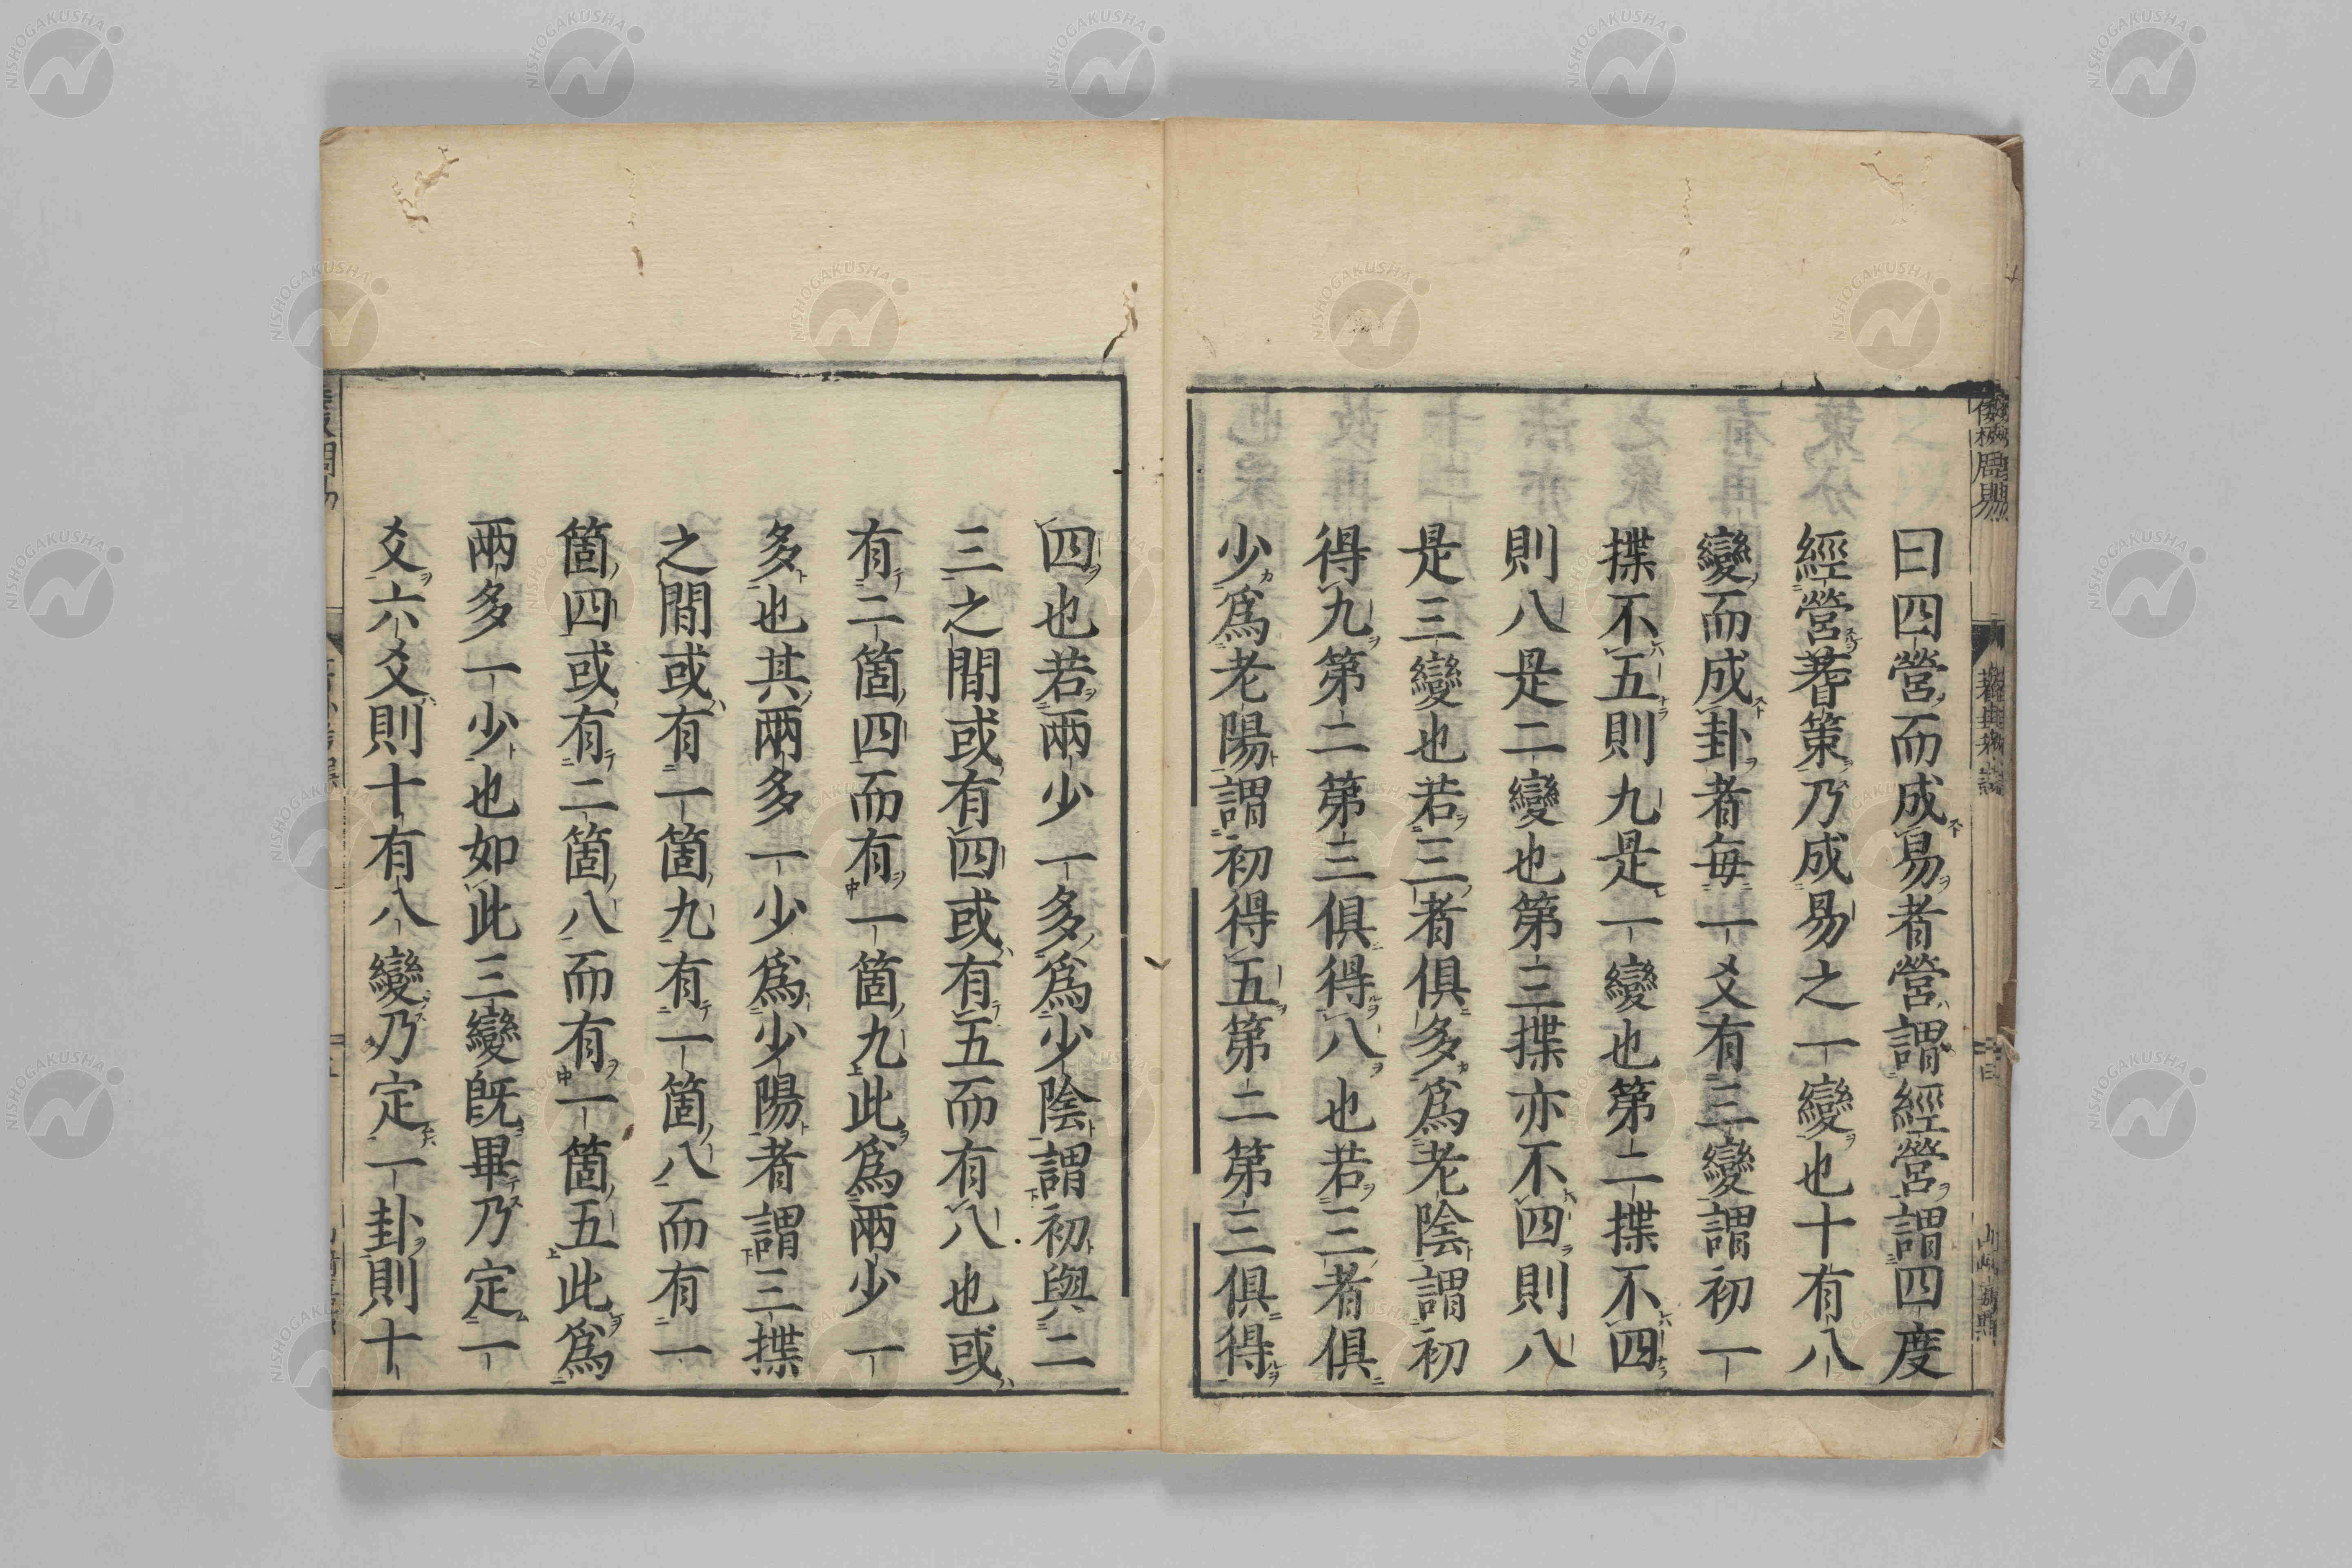 曰四營而成易者營謂經營謂四度
經營蓍策乃成易之一變也十有八
變而成卦者每一爻有三變謂初一
揲不五則九是一變也第二揲不四
則八是二變也第三揲亦不四則八
是三變也若三者俱多爲老陰謂初
得九第二第三俱得八也若三者俱
少爲老陽謂初得五第二第三俱得
四也若兩少一多爲少陰謂初與二
三之間或有四或有五而有八也或
有二箇四而有一箇九此爲兩少一
多也其兩多一少爲少陽者謂三揲
之間或有一箇九有一箇八而有一
箇四或有二箇八而有一箇五此爲
兩多一少也如此三變既畢乃定一
爻六爻則十有八變乃定一卦則十
NISHOGAKUSHA